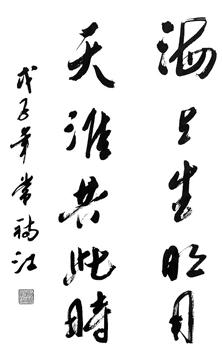 海上生明月
天涯共此時
戊子年常福江